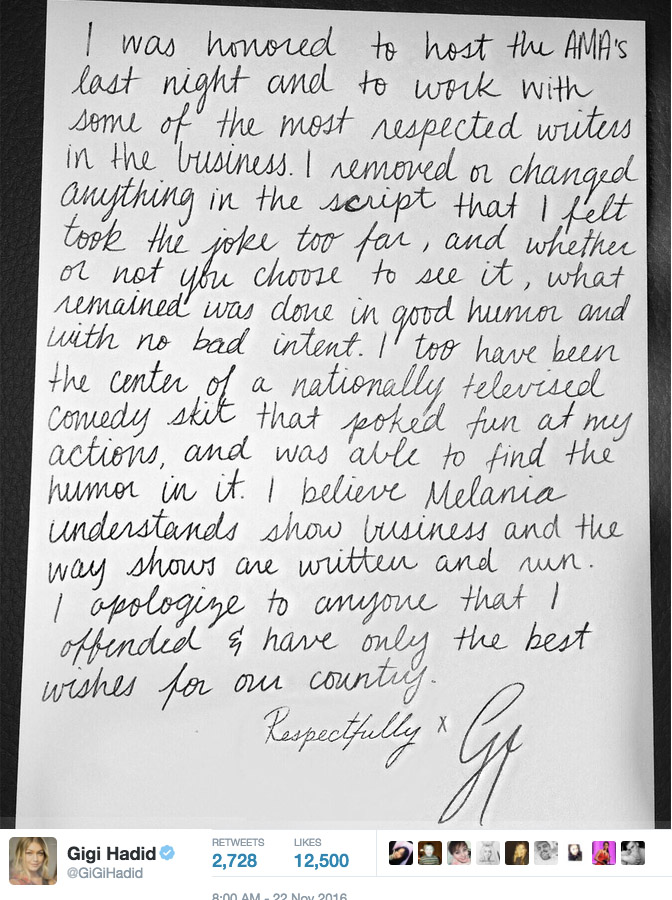 I was honored to host the AMA's
last night and to work with
some of the most respected writers
in the business. I removed or changed
anything in the script that I felt
took the joke too far, and whether
or not you choose to see it, what
remained was done in good humor and
with no bad intent. I too have been
the center of a nationally televised
comedy skit that poked fun at my
actions, and was able to find the
humor in it. I believe Melania
understands show business and the
way shows are written and run.
I apologize to anyone that I
offended & have only the best
wishes for our country.
Respectfully x
Gigi Hadid
@GiGiHadid
RETWEETS LIKES
2,728 12,500
8:00 AM - 22 Nov 2016